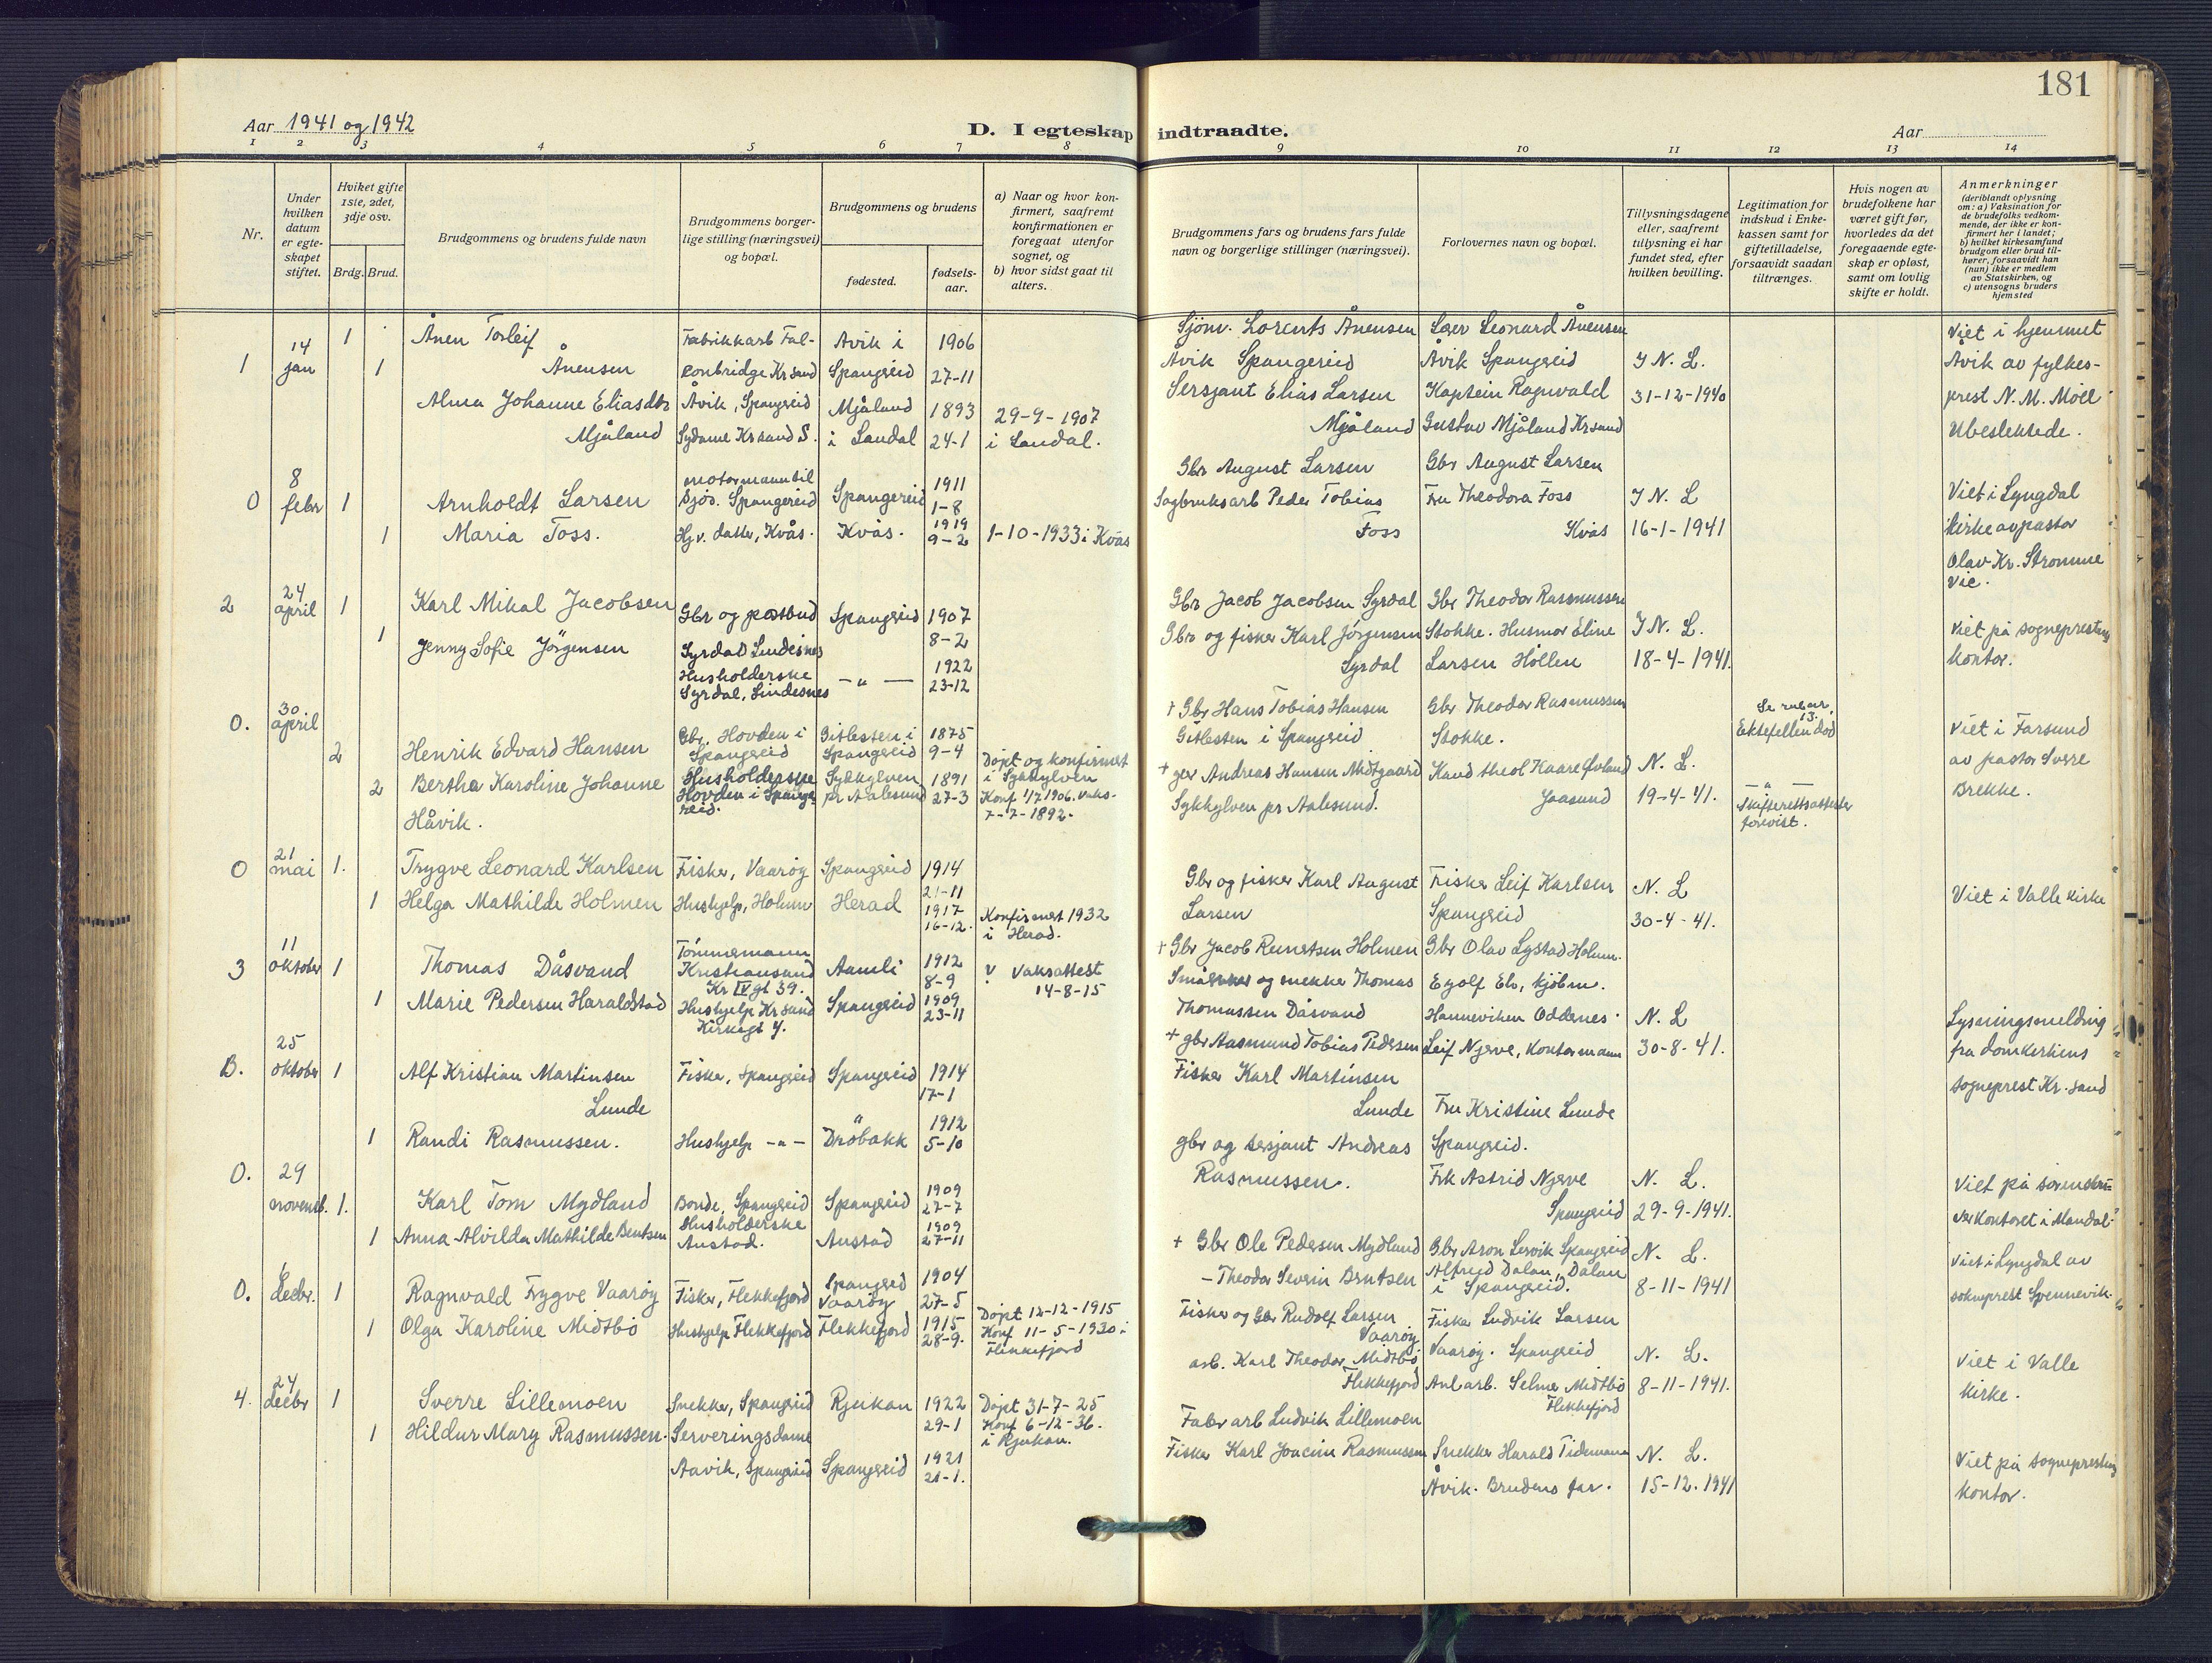 181
Aar 1941 og 1942
D. I egteskap indtraadte.
Aar
1 2 3 4 5 6 7 8 9 10 11 12 13 14
Nr.
Under
hvilken
datum
er egte-
skapet
stiftet.
Hviket gifte
1ste, 2det,
3dje osv.
Brdg. Brud.
Brudgommens og brudens fulde navn
Brudgommens borger-
lige stilling (næringsvei)
og bopæl.
Brudgommens og brudens
fødested.
fødsels-
aar.
a) Naar og hvor kon-
firmert, saafremt
konfirmationen er
foregaat utenfor
sognet, og
b) hvor sidst gaat til
alters.
Brudgommens fars og brudens fars fulde
navn og borgerlige stillinger (næringsvei).
Forlovernes navn og bopæl.
Tillysningsdagene
eller, saafremt
tillysning ei har
fundet sted, efter
hvilken bevilling.
Legitimation for
indskud i Enke-
kassen samt for
giftetilladelse,
forsaavidt saadan
tiltrænges.
Hvis nogen av
brudefolkene har
været gift før,
hvorledes da det
foregaaende egte-
skap er opløst,
samt om lovlig
skifte er holdt.
Anmerkninger
(deriblandt oplysning
om: a) Vaksination for
de brudefolks vedkom-
mende, der ikke er kon-
firmert her i landet;
b) hvilket kirkesamfund
brudgom eller brud til-
hører, forsaavidt han
(hun) ikke er medlem
av Statskirken, og
c) utensogns bruders
hjemsted
1
14
jan
1
1
Ånen Torleif
Ånensen
Alma Johanne Eliasdtr
Mjåland
Fabrikkarb Fal-
conbridge Kr sand
Åvik, Spangreid
Sydame Kr sand S.
Avik i
Spangreid
Mjåland
i Laudal
1906
27-11
1893
24-1
29-9-1907
i Laudal.
Sjöm. Lorents Ånensen
Åvik Spangereid
Sersjant Elias Larsen
Mjåland
Lær Leonard Ånensen
Åvik Spangreid
Kaptein Ragnvald
Gustav Mjåland Kr sand
I N. L.
31-12-1940
Viet i hjemmet
Avik av fylkes-
prest N. M. Möll
Ubeslektede.
0
8
febr
1
1
Arnholdt Larsen
Maria Foss.
motormann bil
Sjös. Spangereid
Hj v. datter, Kvås.
Spangereid
Kvås.
1911
1-8
1919
9-2
1-10-1933 i Kvås
Gbr August Larsen
Sagbruksarb Peder Tobias
Foss
Gbr August Larsen
Fru Theodora Foss
Kvås
I N. L
16-1-1941
Viet i Lyngdal
kirke av pastor
Olav Kr. Strømme
Vie.
2
24
april
1
1
Karl Mikal Jacobsen
Jenny Sofie Jörgensen
Gbr og postbud
Syrdal Lindesnes
Husholderske
Syrdal, Lindesnes
Spangreid
— " —
1907
8-2
1922
23-12
Gbr Jacob Jacobsen Syrdal
Gbr og fisker Karl Jörgensen
Syrdal
Gbr Theodor Rasmussen
Stokke. Husmor Eline
Larsen Höllen
I N. L.
18-4-1941.
Viet på sogneprestens
kontor.
0.
30
april
2
2
Henrik Edvard Hansen
Bertha Karoline Johanne
Håvik.
Gbr. Hovden i
Spangreid
Husholderske
Hovden i Spange-
reid.
Gitlesten i
Spangreid
Sykkylven
pr Aalesund
1875
9-4
1891
27-3
Döpt og konfirmert
i Sykkylven
Konf 1/7 1906. Vaks-
7-7-1892.
+ Gbr Hans Tobias Hansen
Gitlesten i Spangreid
+ ger Andreas Hansen Midtgaard
Sykkylven pr Aalesund.
Gbr Theodor Rasmussen
Stokke.
Kand theol Kaare Öuland
Jaasund
N. L.
19-4-41.
Se rubr,
13.
Ektefellen död
— " —
Skifterettsattester
forevist.
Viet i Farsund
av pastor Sverre
Brekke.
0
21
mai
1.
1
Trygve Leonard Karlsen
Helga Mathilde Holmen
Fisker, Vaaröy
Hushjelp, Holum
Spangreid
Herad
1914
21-11
1917
16-12.
Konfirmert 1932
i Herad.
Gbr og fisker Karl August
Larsen
+ Gbr Jacob Reinertsen Holmen
Fisker Leif Karlsen
Spangreid
Gbr Olav Lystad Holum.
N. L
30-4-41.
Viet i Valle kirke
3
11
oktober
1
1
Thomas Dåsvand
Marie Pedersen Haraldstad
Tömmermann
Kristiansand
Kr IV gt 39.
Hushjelp Kr sand
Kirkegt 4.
Aamli
Spangreid
1912
8-9
1909
23-11
V Vaksattest
14-8-15
Småbruker og snekker Thomas
Thomassen Dåsvand
+ gbr Aasmund Tobias Pedersen
Egolf Eh, kjöbm.
Hanneviken Oddenes.
Leif Njerve, Kontormann
N. L
30-8-41.
Lysningsmelding
fra domkirkens
sogneprest Kr. sand
B.
25
oktober
1
1
Alf Kristian Martinsen
Lunde
Randi Rasmussen.
Fisker, Spangreid
Hushjelp — " —
Spangreid
Dröbakk
1914
17-1
1912
5-10
Fisker Karl Martinsen
Lunde
gbr og sersjant Andreas
Rasmussen.
Fru Kristine Lunde
Spangreid.
Frk Astrid Njerve
Spangreid
N. L.
29-9-1941.
Viet på sorenskri-
verkontoret i Mandal.
0.
29
novemb.
1.
1
Karl Tom Mydland
Anna Alvilda Mathilde Bentsen
Bonde, Spangreid
Husholderske
Austad.
Spangreid
Austad
1909
27-7
1909
27-11
+ Gbr Ole Pedersen Mydland
— Theodor Severin Berntsen
Gbr Aron Lervik Spangreid
Alfred Dalan, Dalan
i Spangreid.
N. L.
8-11-1941
Viet i Lyngdal av
sokneprest Spennevik.
0.
6
decbr.
1
1
Ragnvald Trygve Vaaröy
Olga Karoline Midtbö
Fisker, Flekkefjord
Hushjelp Flekkefjord
Spangreid
Vaaröy
Flekkefjord
1904
27-5
1915
28-9.
Döpt 12-12-1915
Konf 11-5-1930 i
Flekkefjord
Fisker og Gbr Rudolf Larsen
Vaaröy
arb. Karl Theodor Midtbö
Flekkefjord
Fisker Ludvik Larsen
Vaaröy. Spangreid
Anl arb. Selmer Midtbö
Flekkefjord
N. L.
8-11-1941.
Viet i Valle
kirke.
4.
24
decbr
1
1
Sverre Lillemoen
Hildur Mary Rasmussen.
Snekker, Spangreid
Serveringsdame
Aavik, Spangreid
Rjukan
Spangreid
1922
29-1
1921
21-1.
Döpt 31-7-25
Konf 6-12-36.
i Rjukan.
Fabr arb Ludvik Lillemoen
Fisker Karl Joacim Rasmussen
Snekker Harald Tidemann
Åvik. Brudens far.
N. L.
15-12.1941
Viet på sogneprestens
kontor.